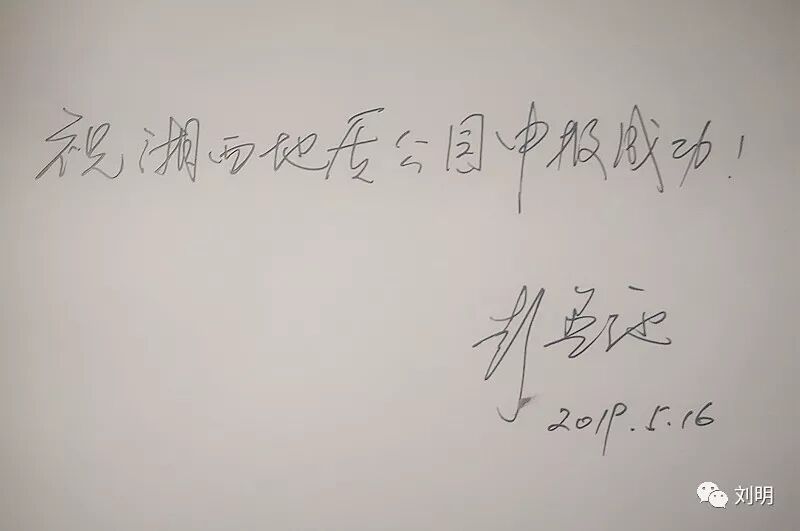 祝湘西地质公园申报成功!
2019.5.16
刘明